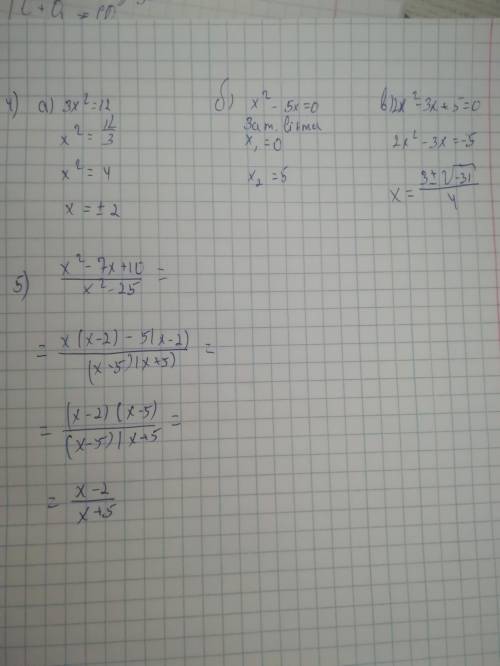 4) а) 3x² = 12
x² = 12/3
x² = 4
x = ± 2
б) x² - 5x = 0
x₁ = 0
x₂ = 5
в) 2x² - 3x + 5 = 0
2x² - 3x = -5
x = (3 ± √-31)/4
5) (x² - 7x + 10)/(x² - 25) =
= (x(x-2) - 5(x-2))/((x-5)(x+5)) =
= ((x-2)(x-5))/((x-5)(x+5 =
= (x-2)/(x+5)